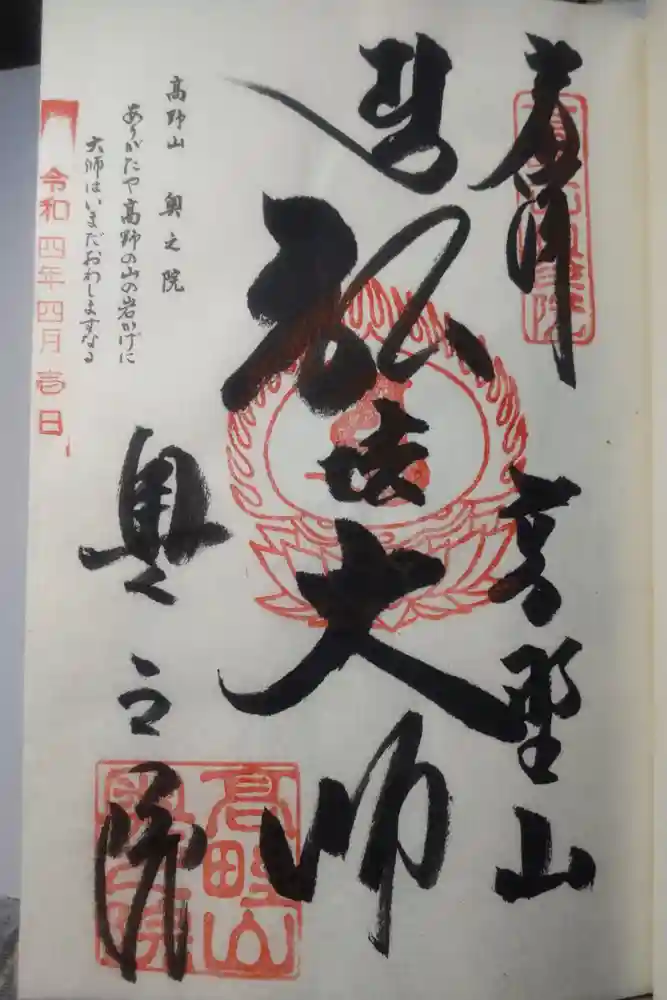 奉拝 高野山
弘法大師
奥之院
高野山 奥之院
ありがたや高野の山の岩かげに
大師はいまだおわしますなる
令和四年四月壱日
高野山
奥之院